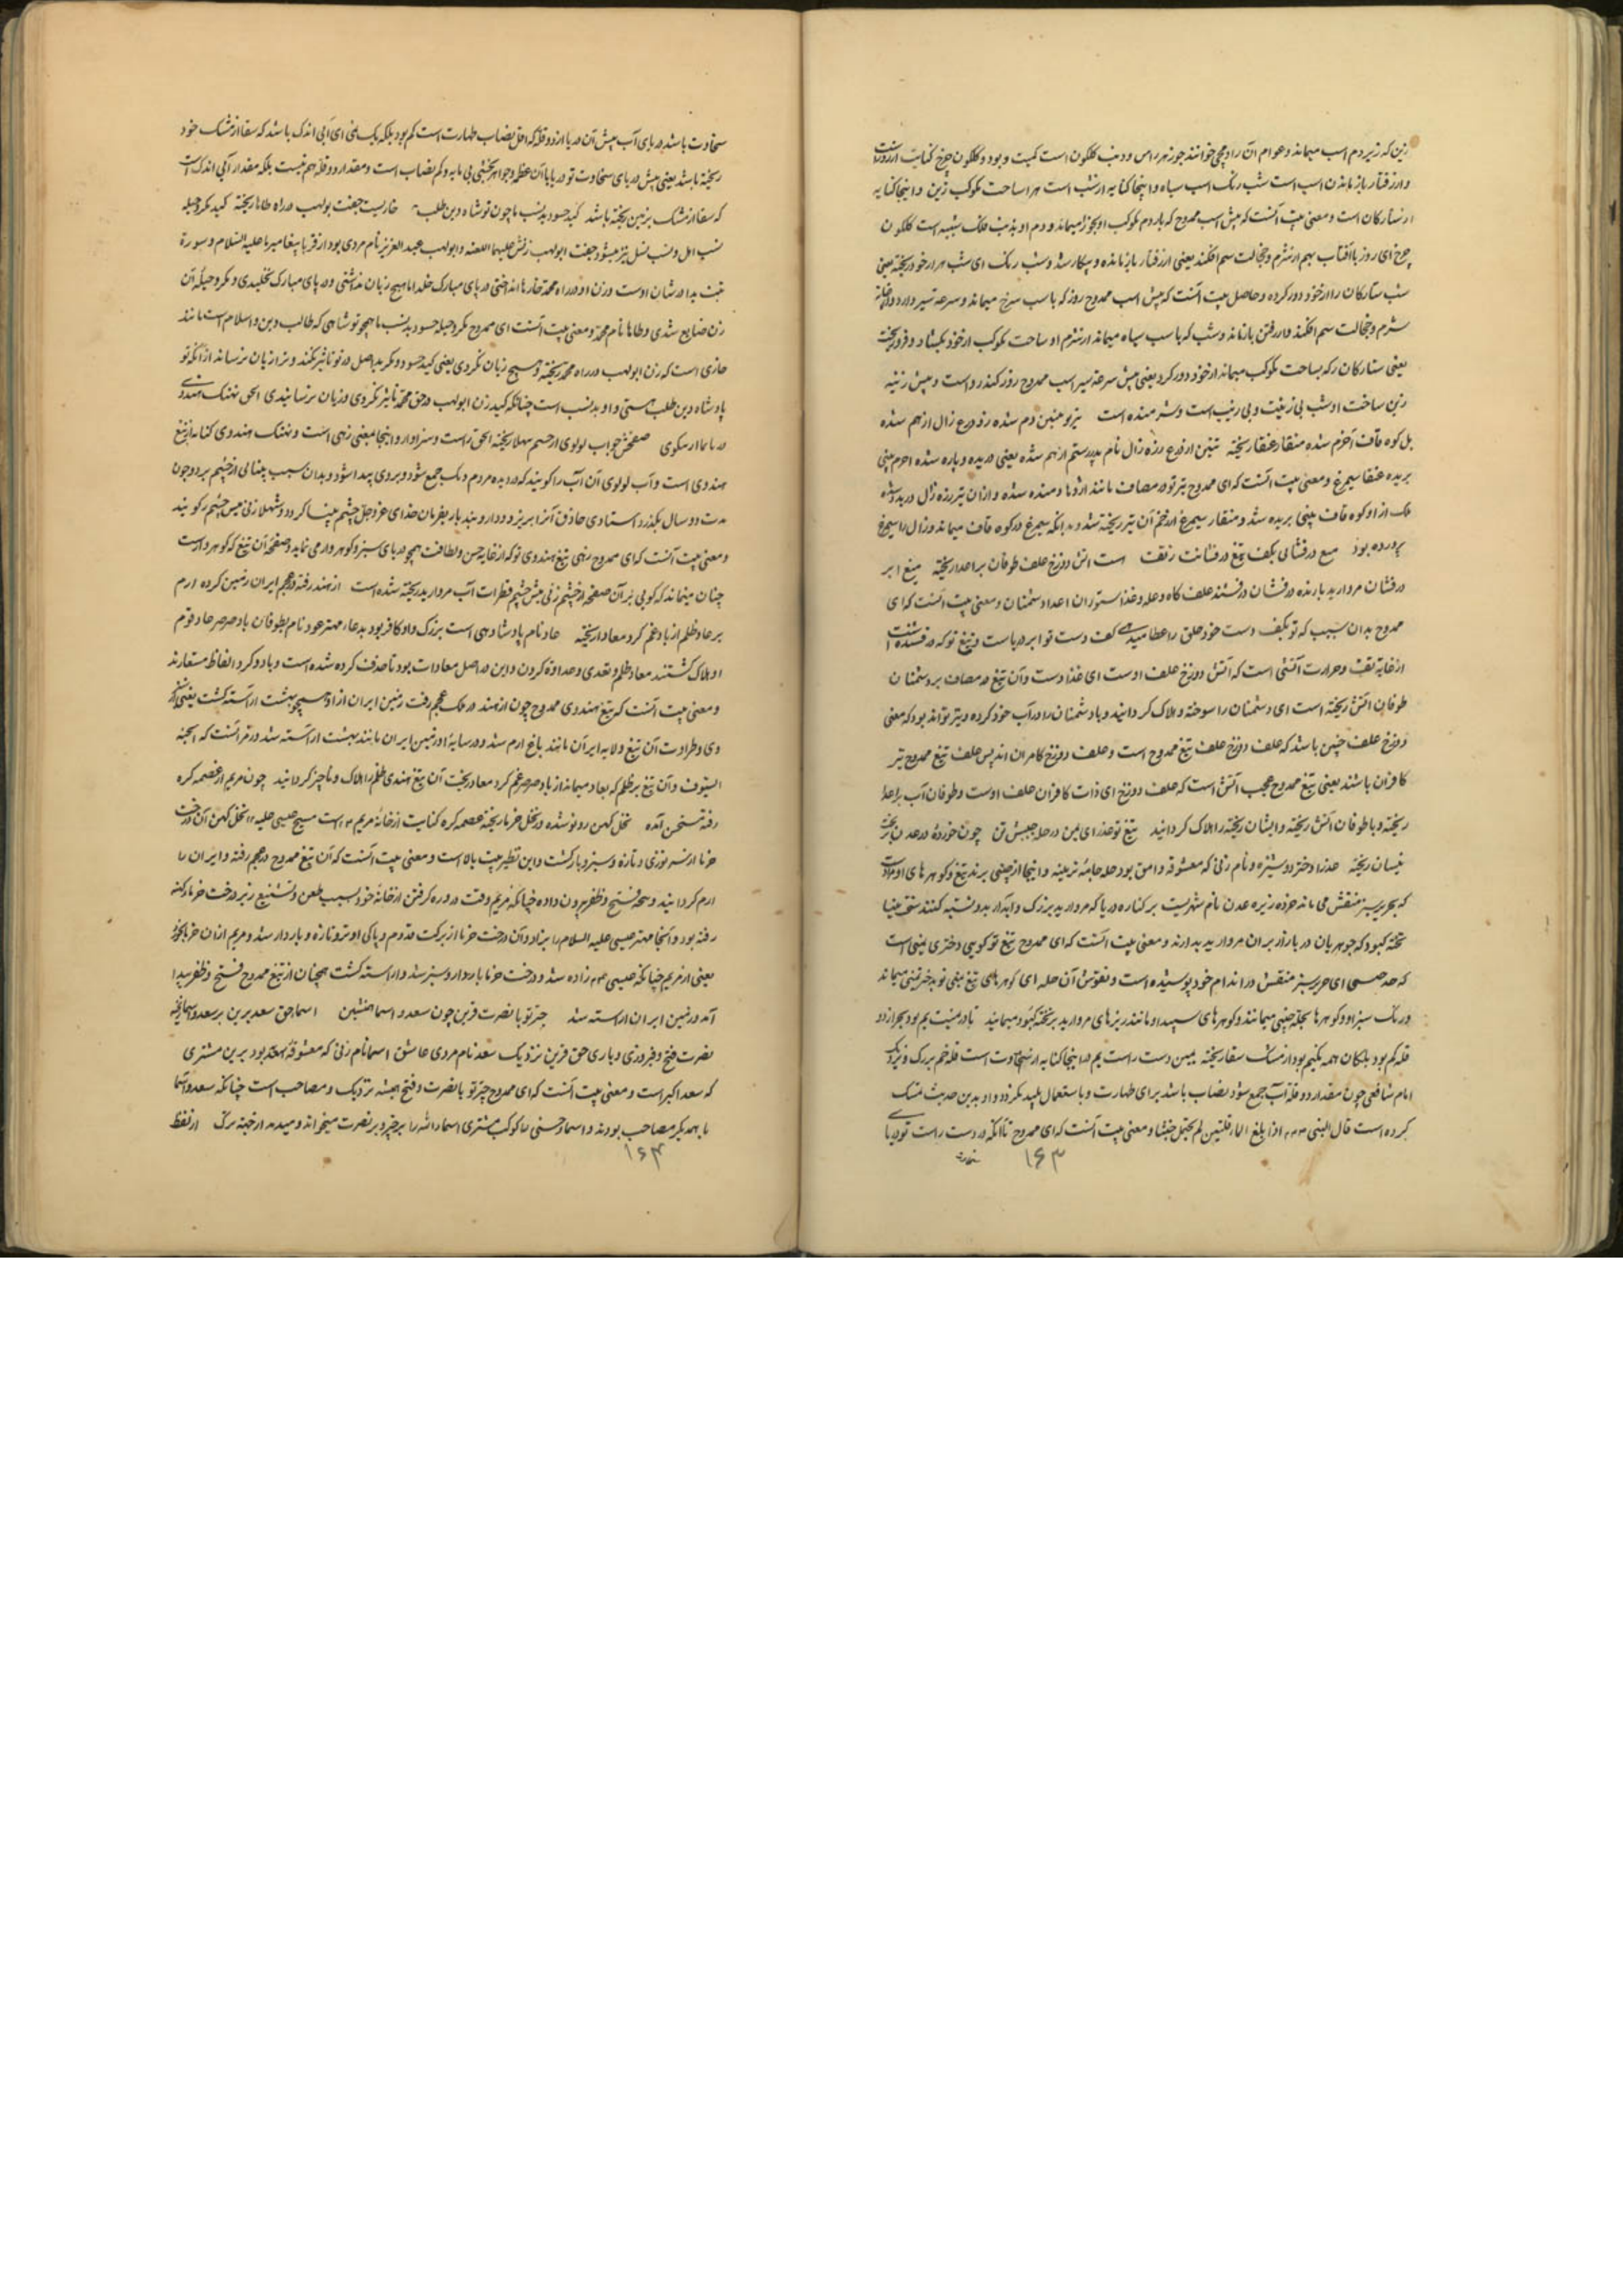 زین که زیر دم اسب میماند و عوام آن را دمچی خوانند جوزهر راس و ذنب گلگون است کمیت و بود و گلگون چرخ کنایت از روز است
و از رفتار باز ماندن اسب است شب رنگ اسب سیاه و اینجا کنایه از شب است هرا ساخت کوکب زین و اینجا کنایه
از ستارگان است و معنی بیت آنست که پیش اسب ممدوح که پاردم کوکب او بجوز میماند و دم او بذنب فلک شبیه است گلگون
چرخ ای روز با آفتاب بهم از شرم و خجالت سم افکند یعنی از رفتار باز مانده و بیکار شد و شب رنگ ای شب هرا از خود ریخته یعنی
شب ستارگان را از خود دور کرده و حاصل بیت آنست که پیش اسب ممدوح روز که باسب سرخ میماند و سرعة سیر دارد
شرم و خجالت سم افکند و از رفتن باز ماند و شب که باسب سیاه میماند از شرم او ساخت کوکب از خود بکشاد و فرو ریخت
یعنی ستارگان را که بساخت کوکب میماند از خود دور کرد یعنی پیش سرعة سیر اسب ممدوح روز کندرو است و پیش زینة
زین ساخت او شب بی زینت و بی زیب است و شرمنده است تیر تو تنین دم شده زو درع زال از هم شده
بل کوه قاف اخرم شده منقار عنقا ریخته تنین اژدها درع زره زال نام پدر رستم از هم شده یعنی دریده و پاره شده اخرم بینی
بریده عنقا سیمرغ و معنی بیت آنست که ای ممدوح تیر تو در مصاف مانند اژدها دمنده شده و از آن تیر زره زال دریده شده
بلک از او کوه قاف بینی بریده شد و منقار سیمرغ از زخم آن تیر ریخته شد و بدانکه سیمرغ در کوه قاف میماند و زال را سیمرغ
پرورده بود میغ درفشانی بکف تیغ درفشانت ز تف است آتش دوزخ علف طوفان بر اعدا ریخته میغ ابر
درفشان مروارید بارنده درفشان درفشنده علف کاه و عله و غذا ستوران اعدا دشمنان و معنی بیت آنست که ای
ممدوح بدان سبب که تو بکف دست خود خلق را عطا میدهی کف دست تو ابر در باست و تیغ تو که درفشنده است
از غایة تف و حرارت آتشی است که آتش دوزخ علف اوست ای غذا اوست و آن تیغ در مصاف بر دشمنان
طوفان آتش ریخته است ای دشمنان را سوخته و هلاک گردانید و باد شمنان را در آب خود کرده و نیز تواند بود که معنی
دوزخ علف چنین باشد که علف دوزخ علف تیغ ممدوح است و علف دوزخ کافران اند پس علف تیغ ممدوح نیز
کافران باشند یعنی تیغ ممدوح عجب آتش است که علف دوزخ ای ذات کافران علف اوست و طوفان آب بر اعدا
ریخته و یا طوفان آتش ریخته و ایشان ریخته را هلاک گردانید تیغ تو عذرای یمن در حله جیش تن چون خرده در عدن بر تخت
نیسان ریخته عذرا دختر دوشیزه و نام زنی که معشوقه وامق بود حله جامه زیبنه و اینجا از چینی برند تیغ و گوهر های او مراد است
که بحریر سبز منقش می ماند خرده زیره عدن نام شهریست بر کناره دریا که مروارید بزرگ و آبدار بدو نسبت کنند تخت مینا
تخته کبود که جوهریان در بازار بر آن مروارید بدارند و معنی بیت آنست که ای ممدوح تیغ تو گویی دختری یمنی است
که حله ای حریر سبز منقش در اندام خود پوشیده است و نقوش آن حله ای گوهر های تیغ یمنی تو بدختر یمنی میماند
و رنگ سبز او و گوهرها بحله چینی میماند و گوهرهای سپید او مانند ریزهای مروارید بر تخته کبود میماند تا در یمینت یم بود بحر از دو
قله کم بود بلکان همه یک نم بود از مشک سقا ریخته یمین دست راست یم دریا اینجا کنایه از سخاوت است قله خم بزرگ و نزدیک
امام شافعی چون مقدار دو قله آب جمع شود نصاب باشد برای طهارت و با ستعمال پلید نگردد و او بدین حدیث تمسک
کرده است قال النبی ۴۴۴ اذا بلغ الماء قلتین لم یحمل خبثا و معنی بیت آنست که ای ممدوح تا آنکه در دست راست تو دریای
۱۶۳
سخاوت باشد دریای آب پیش آن دریا از دو قله که اقل نصاب طهارت است کم بود بلکه یک نمی ای آبی اندک باشد که سقا از مشک خود
ریخته باشد یعنی پیش دریای سخاوت تو دریا با آن عظمه و جواهر بخشی بی مایه و کم نصاب است و مقدار دو قله هم نیست بلکه مقدار آبی اندک است
که سقا از مشک بر زمین ریخته باشد کید حسود بد نسب با چون تو شاه دین طلب خاریست جفت بولهب در راه طاها ریخته کید مکر و حیله
نسب اصل و نسب نسل نیز میشود جفت ابولهب زنش علیهما اللعنه و ابولهب عبدالعزیز نام مردی بود از قربا پیغامبر ما علیه السلام و سورة
تبت یدا در شان اوست و زن او در راه محمد خارها انداختی در پای مبارک خلد اما هیچ زیان نداشتی و در پای مبارک نخلیدی و مکر و حیلة آن
زن ضایع شدی و طاها نام محمد و معنی بیت آنست ای ممدوح مکر و حیلة حسود بد نسب با همچو تو شاهی که طالب دین و اسلام است مانند
خاری است که زن ابولهب در راه محمد ریخته و هیچ زیان نکردی یعنی کید حسود و مکر بد اصل در تو تاثیر نکند و ترا زیان نرساند از آنکه تو
پادشاه دین طلب هستی و او بد نسب است چنانکه کید زن ابولهب در حق محمد تاثیر نکردی و زیان نرسانیدی الحق نهنگ هندوی
دریا نما از نیکوی صفحش چو آب لولوی از چشم شهلا ریخته الحق راست و سزاوار و اینجا بمعنی زهی است و نهنگ هندوی کنایه از تیغ
هندوی است و آب لولوی آن آب را گویند که در دیده مردم و یک جمع شود و بروی پیدا شود و بدان سبب بینائی از چشم برود چون
مدت دو سال بگذرد استادی حاذق آنرا بریزد و دارو بندد باز بفرمان خدای عز و جل چشم بینا گردد و شهلا زنی میش چشم را گویند
و معنی بیت آنست که ای ممدوح زهی تیغ هندوی تو که از غایة حسن و لطافت همچو دریای سبز و گوهردار می نماید و صفحه آن تیغ که گوهردار است
چنان مینماید که گویی بر آن صفحه از چشم زنی میش چشم قطرات آب مروارید ریخته شده است از هند رفته در عجم ایران زمین کرده ارم
بر عاد ظلم از باد غم گرد معادا ریخته عاد نام پادشاهی است بزرگ و او کافر بود بدعاء مهتر هود نام بطوفان باد صرصر عاد و قوم
او هلاک گشتند معاد ظلم و تعدی و عداوة کردن و این در اصل معادات بود تا حذف کرده شده است و باد و گرد الفاظ مستعارند
و معنی بیت آنست که تیغ هندوی ممدوح چون از هند در ملک عجم رفت زمین ایران از او همچو بهشت آراسته گشت یعنی از
وی و طراوت آن تیغ ولایه ایران مانند باغ ارم شد و در سایة او زمین ایران مانند بهشت آراسته شد در قرآنست که الجنة
السیوف و آن تیغ بر ظلم که بعاد میماند از باد صرصر غم گرد معادا ریخت آن تیغ هندی ظلم را هلاک و ناچیز گردانید چون مریم از غصمه کره
رفته سخن آمده نخل کهن رو نو شده وز نخل خرما ریخته غصمه کره کنایت از خانه مریم ۴ است مسیح عیسی علیه ۴ نخل کهن آن درخت
خرما از سر نو زی و تازه و سبز و بار گشت و این نظیر بیت بالا است و معنی بیت آنست که آن تیغ ممدوح در عجم رفته و ایران را
ارم گردانید و صحه فتح و ظفر بیرون داده چنانکه مریم وقت در دره گرفتن از خانة خود بسبب طعن و تشنیع زیر درخت خرما کهنه
رفته بود و آنجا مهتر عیسی علیه السلام را بزاد و آن درخت خرما از برکت قدوم و پاکی او تر و تازه و باردار شد و مریم از ان خرما بخورد
یعنی از مریم چنانکه عیسی ۴ زاده شد و درخت خرما باردار و سبز شد و آراسته گشت همچنان از تیغ ممدوح فتح و ظفر پیدا
آمد و زمین ایران آراسته شد چتر تو با نصرت قرین چون سعد و اسما همنشین اسما حق سعد برین بر سعد و اسما ریخته
نصرت فتح و فیروزی و یاری حق قرین نزدیک سعد نام مردی عاشق اسما نام زنی که معشوقة سعد بود برین مشتری
که سعد اکبر است و معنی بیت آنست که ای ممدوح چتر تو با نصرت و فتح همیشه نزدیک و مصاحب است چنانکه سعد و اسما
با یمدیگر مصاحب بودند و اسماء حسنی را کوکب مشتری اسماء الله را بر چتر و بر نصرت میخواند و میدمد از خجسته برگ از لفظ
۱۶۴